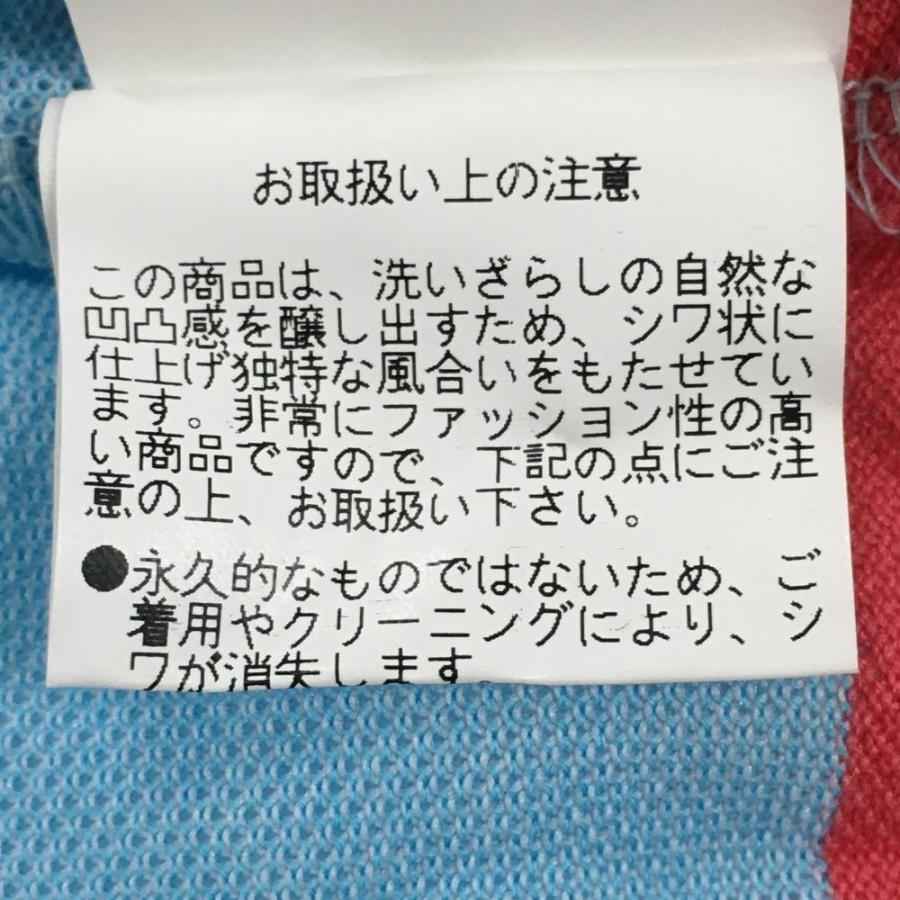 お取扱い上の注意
この商品は、洗いざらしの自然な
凹凸感を醸し出すため、シワ状に
仕上げ独特な風合いをもたせてい
ます。非常にファッション性の高
い商品ですので、下記の点にご注
意の上、お取扱い下さい。
●永久的なものではないため、ご
着用やクリーニングにより、シ
ワが消失します。